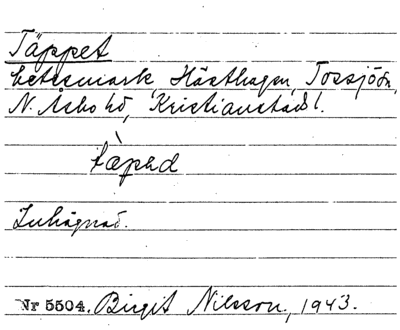 Täppet
betesmark, Hästhagen, Tossjöän,
N. Åsbo hd, Kristianstads l.
tàpəd
Inhägnad.
Nr 5504. Birgit Nilsson, 1943.